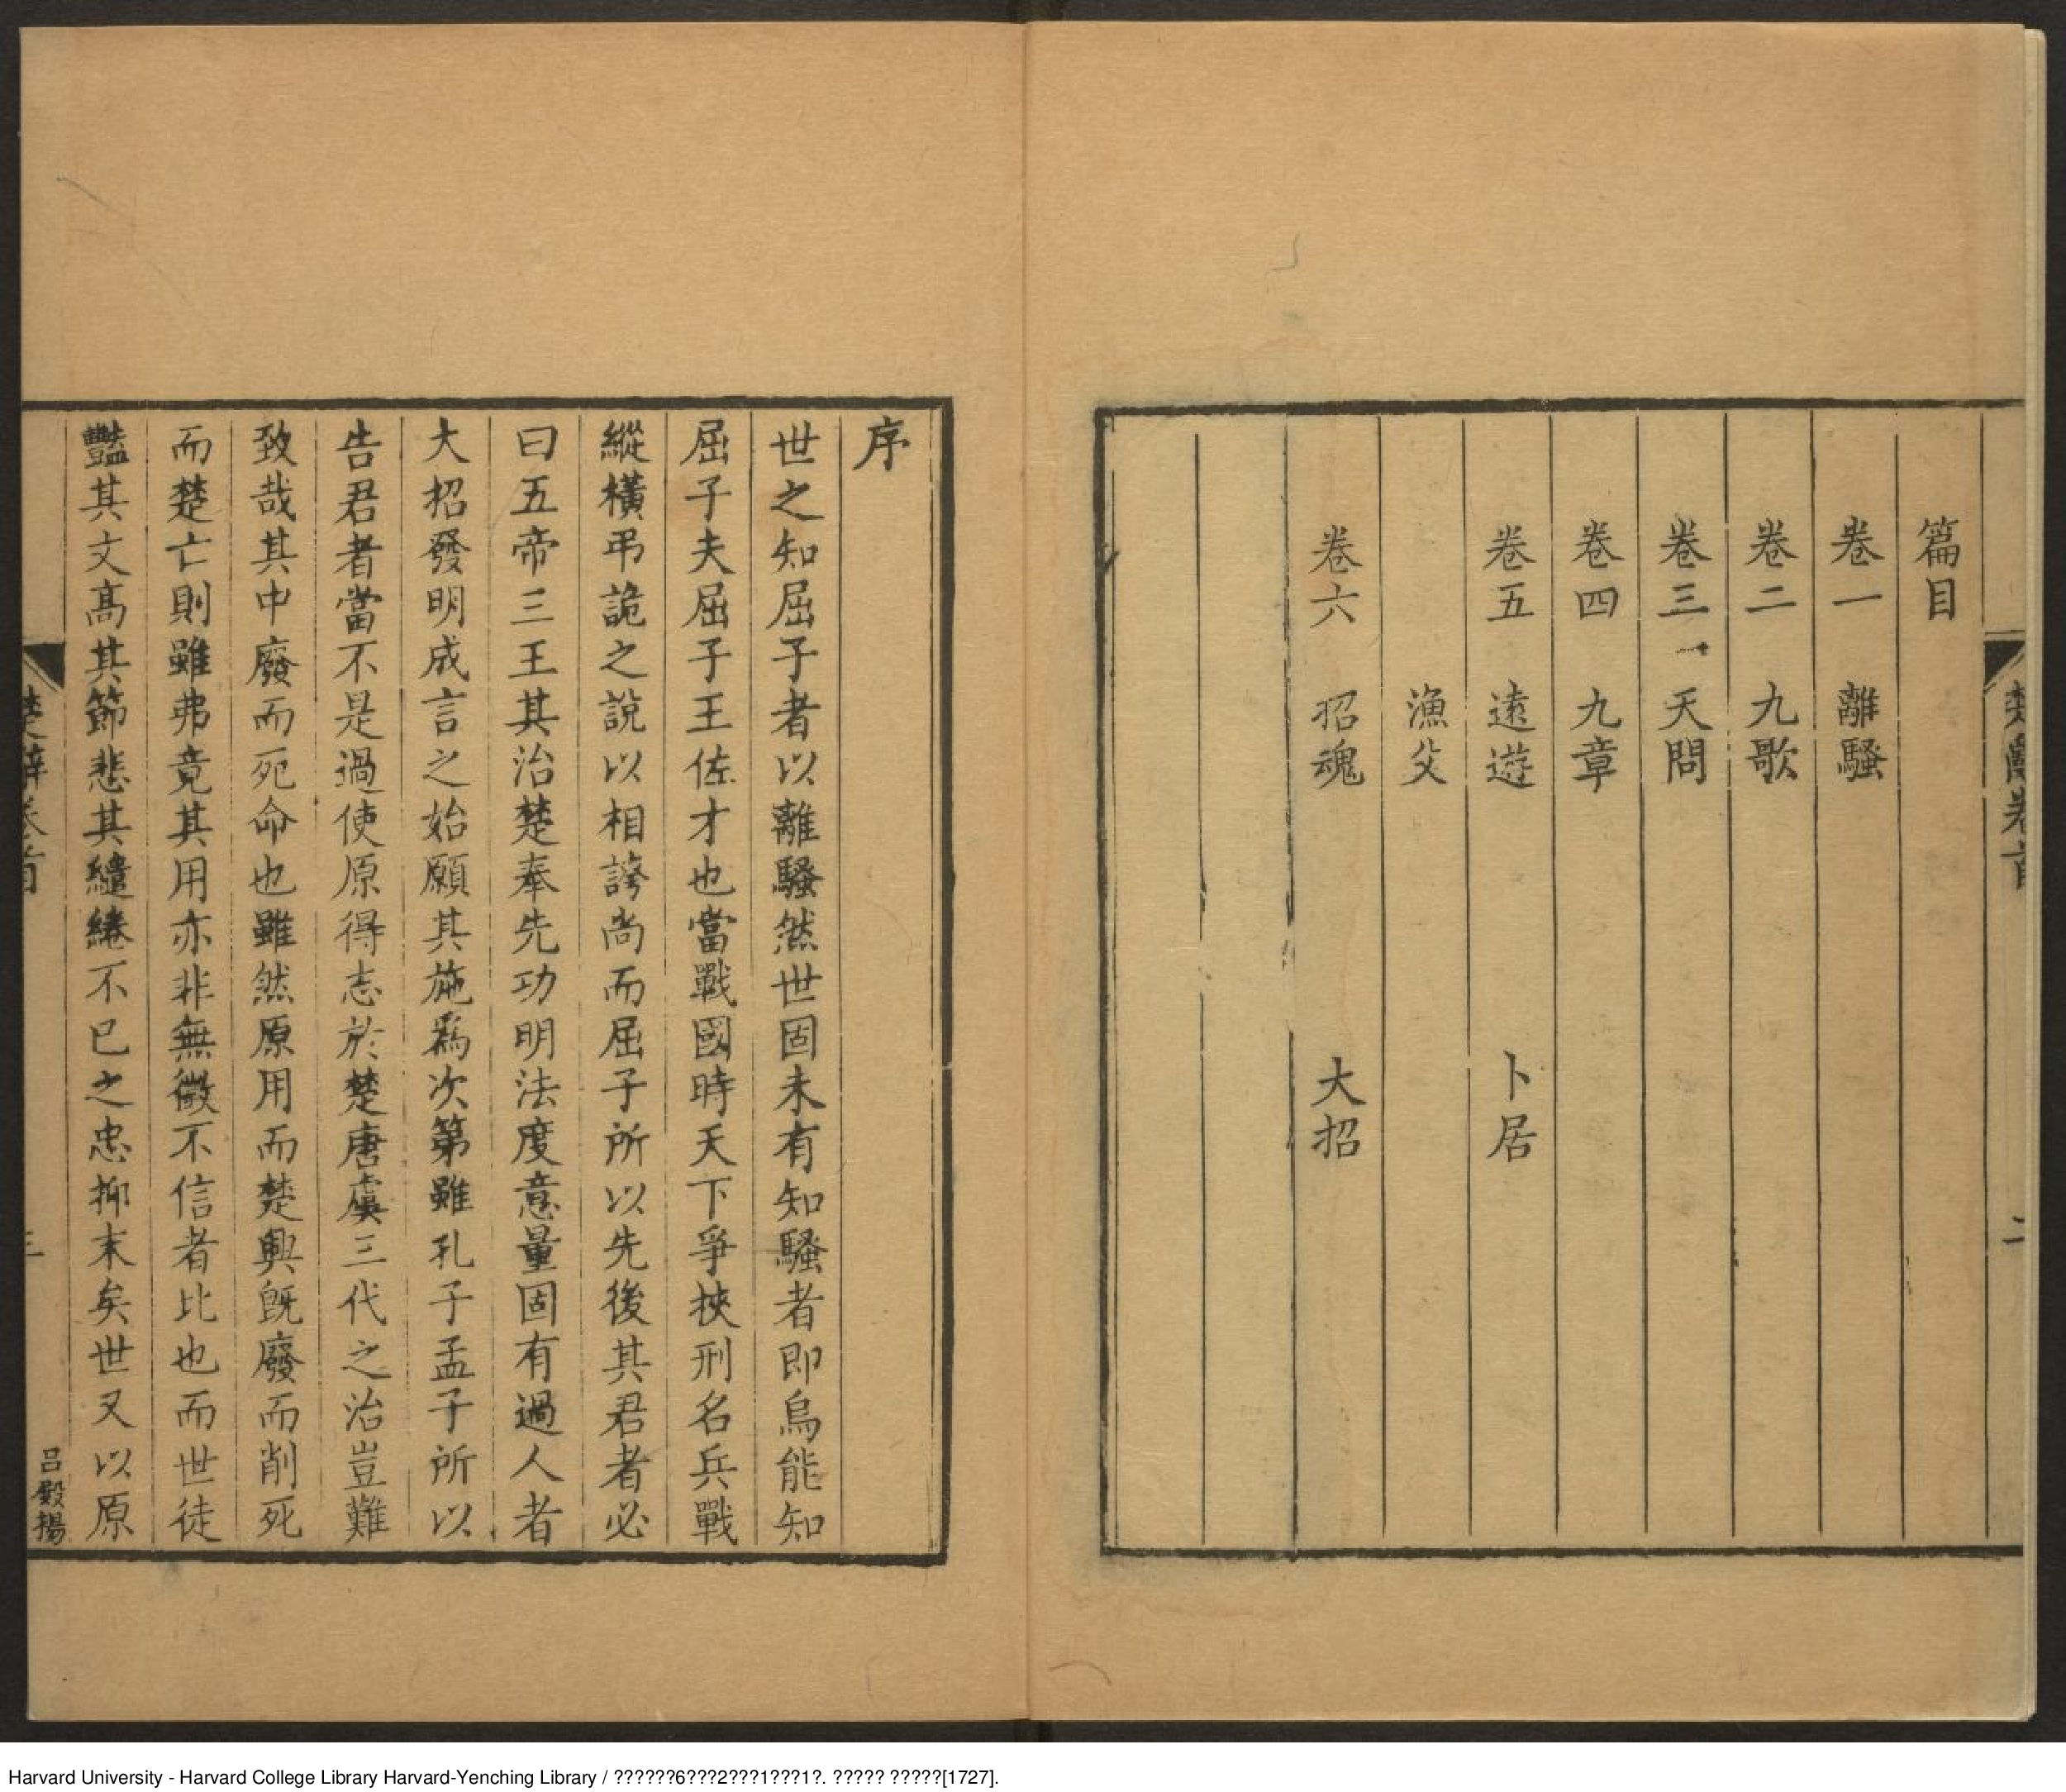 楚辭卷首
二
篇目
卷一 離騷
卷二 九歌
卷三 天問
卷四 九章
卷五 遠遊 卜居
漁父
卷六 招魂 大招
序
世之知屈子者以離騷然世固未有知騷者即烏能知
屈子夫屈子王佐才也當戰國時天下爭挾刑名兵戰
縱橫弔詭之說以相誇尚而屈子所以先後其君者必
曰五帝三王其治楚奉先功明法度意量固有過人者
大招發明成言之始願其施爲次第雖孔子孟子所以
告君者當不是過使原得志於楚唐虞三代之治豈難
致哉其中廢而死命也雖然原用而楚興旣廢而削死
而楚亡則雖弗竟其用亦非無徵不信者比也而世徒
豔其文高其節悲其繾綣不已之忠抑末矣世又以原
楚辭卷首
三
呂殿揚
Harvard University - Harvard College Library Harvard-Yenching Library / ??????6???2???1???1?. ????? ?????[1727].